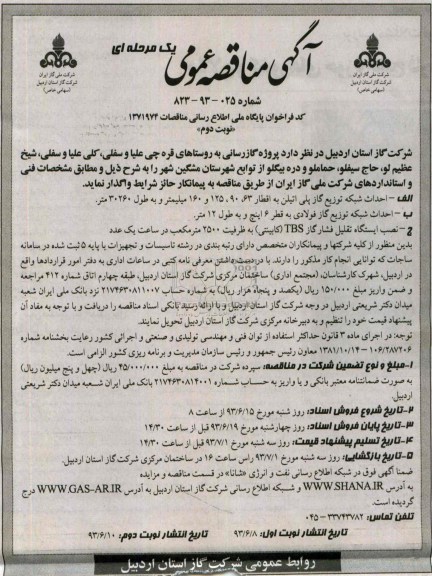 آگهی مناقصه عمومی یک مرحله ای
شرکت ملی گاز ایران
شرکت گاز استان اردبیل
(سهامی خاص)
شرکت ملی گاز ایران
شرکت گاز استان اردبیل
(سهامی خاص)
شماره ۰۲۵-۹۳-۸۲۳
کد فراخوان پایگاه ملی اطلاع رسانی مناقصات ۱۳۷۱۹۷۴
«نوبت دوم»
شرکت گاز استان اردبیل در نظر دارد پروژه گازرسانی به روستاهای قره چی علیا و سفلی، کلی علیا و سفلی، شیخ
عظیم لو، حاج سیفلو، حماملو و دره بیگلو از توابع شهرستان مشگین شهر را به شرح ذیل و مطابق مشخصات فنی
و استانداردهای شرکت ملی گاز ایران از طریق مناقصه به پیمانکار حائز شرایط واگذار نماید.
الف- احداث شبکه توزیع گاز پلی اتیلن به اقطار ۶۳، ۹۰، ۱۲۵ و ۱۶۰ میلیمتر و به طول ۳۰۲۶۰ متر.
ب- احداث شبکه توزیع گاز فولادی به قطر ۶ اینچ و به طول ۱۲ متر.
ج- نصب ایستگاه تقلیل فشار گاز TBS (کابینتی) به ظرفیت ۲۵۰۰ مترمکعب در ساعت یک عدد
بدین منظور از کلیه شرکتها و پیمانکاران متخصص دارای رتبه بندی در رشته تاسیسات و تجهیزات یا پایه ۵ ثبت شده در سامانه
ساجات که توانایی انجام کار مذکور را دارند، با در دست داشتن معرفی نامه کتبی در ساعات اداری به دفتر امور قراردادها واقع
در اردبیل، شهرک کارشناسان، (مجتمع اداری) ساختمان مرکزی شرکت گاز استان اردبیل، طبقه چهارم اتاق شماره ۴۱۲ مراجعه
و ضمن واریز مبلغ ۱۵۰/۰۰۰ ریال (یکصد و پنجاه هزار ریال) به شماره حساب ۲۱۷۴۶۳۰۸۱۱۰۰۷ نزد بانک ملی ایران شعبه
میدان دکتر شریعتی اردبیل در وجه شرکت گاز استان اردبیل و با ارائه رسید بانکی اسناد مناقصه را دریافت و با توجه به مفاد آن
پیشنهاد قیمت خود را تنظیم و به دبیرخانه مرکزی شرکت گاز استان اردبیل تحویل نمایند.
توجه: در اجرای ماده ۳ قانون حداکثر استفاده از توان فنی و مهندسی تولیدی و صنعتی و اجرائی کشور رعایت بخشنامه شماره
۱۰۶/۲۸۷۲۰۶ – ۱۳۸۱/۱۰/۱۴ معاون رئیس جمهور و رئیس سازمان مدیریت و برنامه ریزی کشور الزامی است.
۱-مبلغ و نوع تضمین شرکت در مناقصه: سپرده شرکت در مناقصه به مبلغ ۴۵/۰۰۰/۰۰۰ ریال (چهل و پنج میلیون ریال)
به صورت ضمانتنامه معتبر بانکی و یا واریز به حساب شماره ۲۱۷۴۶۳۰۸۱۴۰۰۱ بانک ملی ایران شعبه میدان دکتر شریعتی
اردبیل.
۲-تاریخ شروع فروش اسناد: روز شنبه مورخ ۹۳/۶/۱۵ از ساعت ۸
۳-تاریخ پایان فروش اسناد: روز چهارشنبه مورخ ۹۳/۶/۱۹ قبل از ساعت ۱۴/۳۰
۴-تاریخ تسلیم پیشنهاد قیمت: روز سه شنبه مورخ ۹۳/۷/۱ قبل از ساعت ۱۴/۳۰
۵-تاریخ بازگشایی: روز سه شنبه مورخ ۹۳/۷/۱ راس ساعت ۱۶ در ساختمان مرکزی شرکت گاز استان اردبیل.
ضمنا آگهی فوق در شبکه اطلاع رسانی نفت و انرژی «شانا» در قسمت مناقصه و مزایده
به آدرس WWW.SHANA.IR و شبکه اطلاع رسانی شرکت گاز استان اردبیل به آدرس WWW.GAS-AR.IR درج
گردیده است.
تلفن تماس: ۳۳۷۴۳۷۸۲-۰۴۵
تاریخ انتشار نوبت اول: ۹۳/۶/۸ تاریخ انتشار نوبت دوم: ۹۳/۶/۱۰
روابط عمومی شرکت گاز استان اردبیل